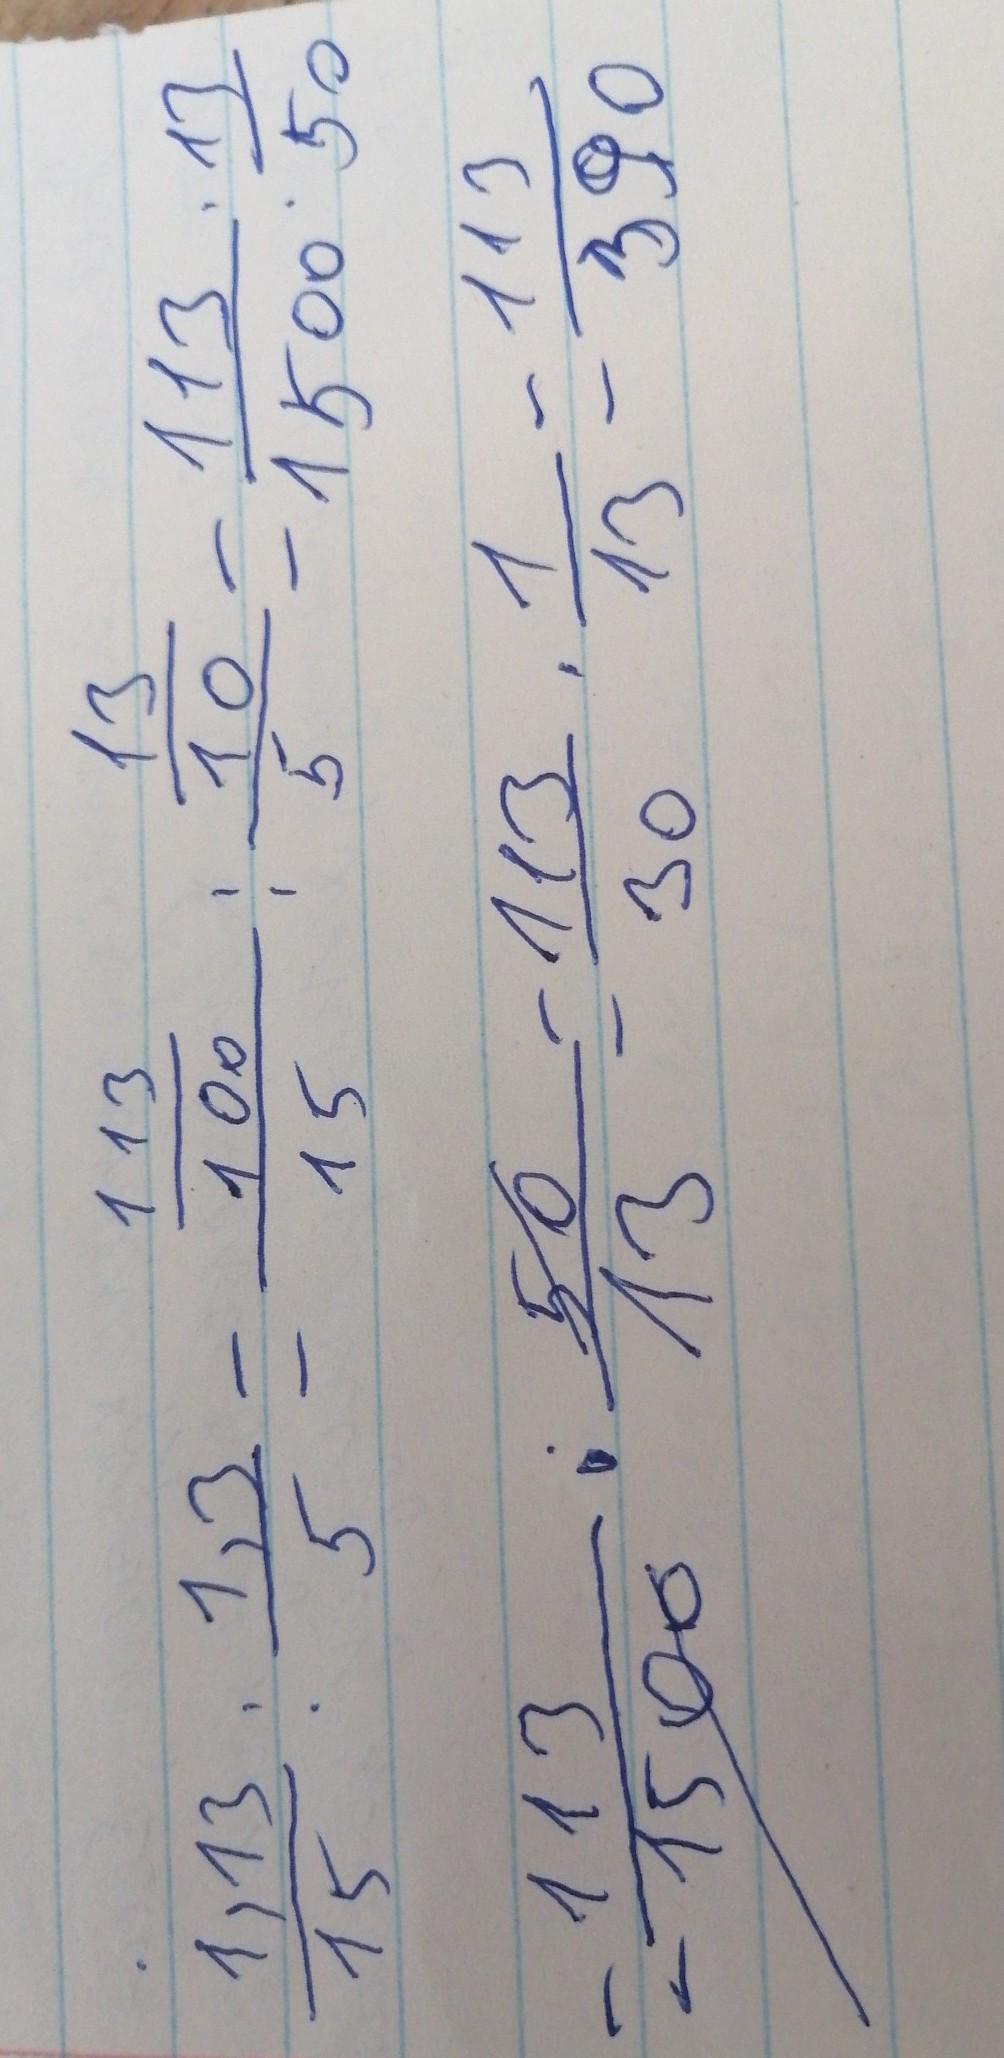 1,13/15 : 1,3/5 = 113/100/15 : 13/10/5 = 113/1500 : 13/50
= 113/1500 : 50/13 = 113/30 · 1/13 = 113/390